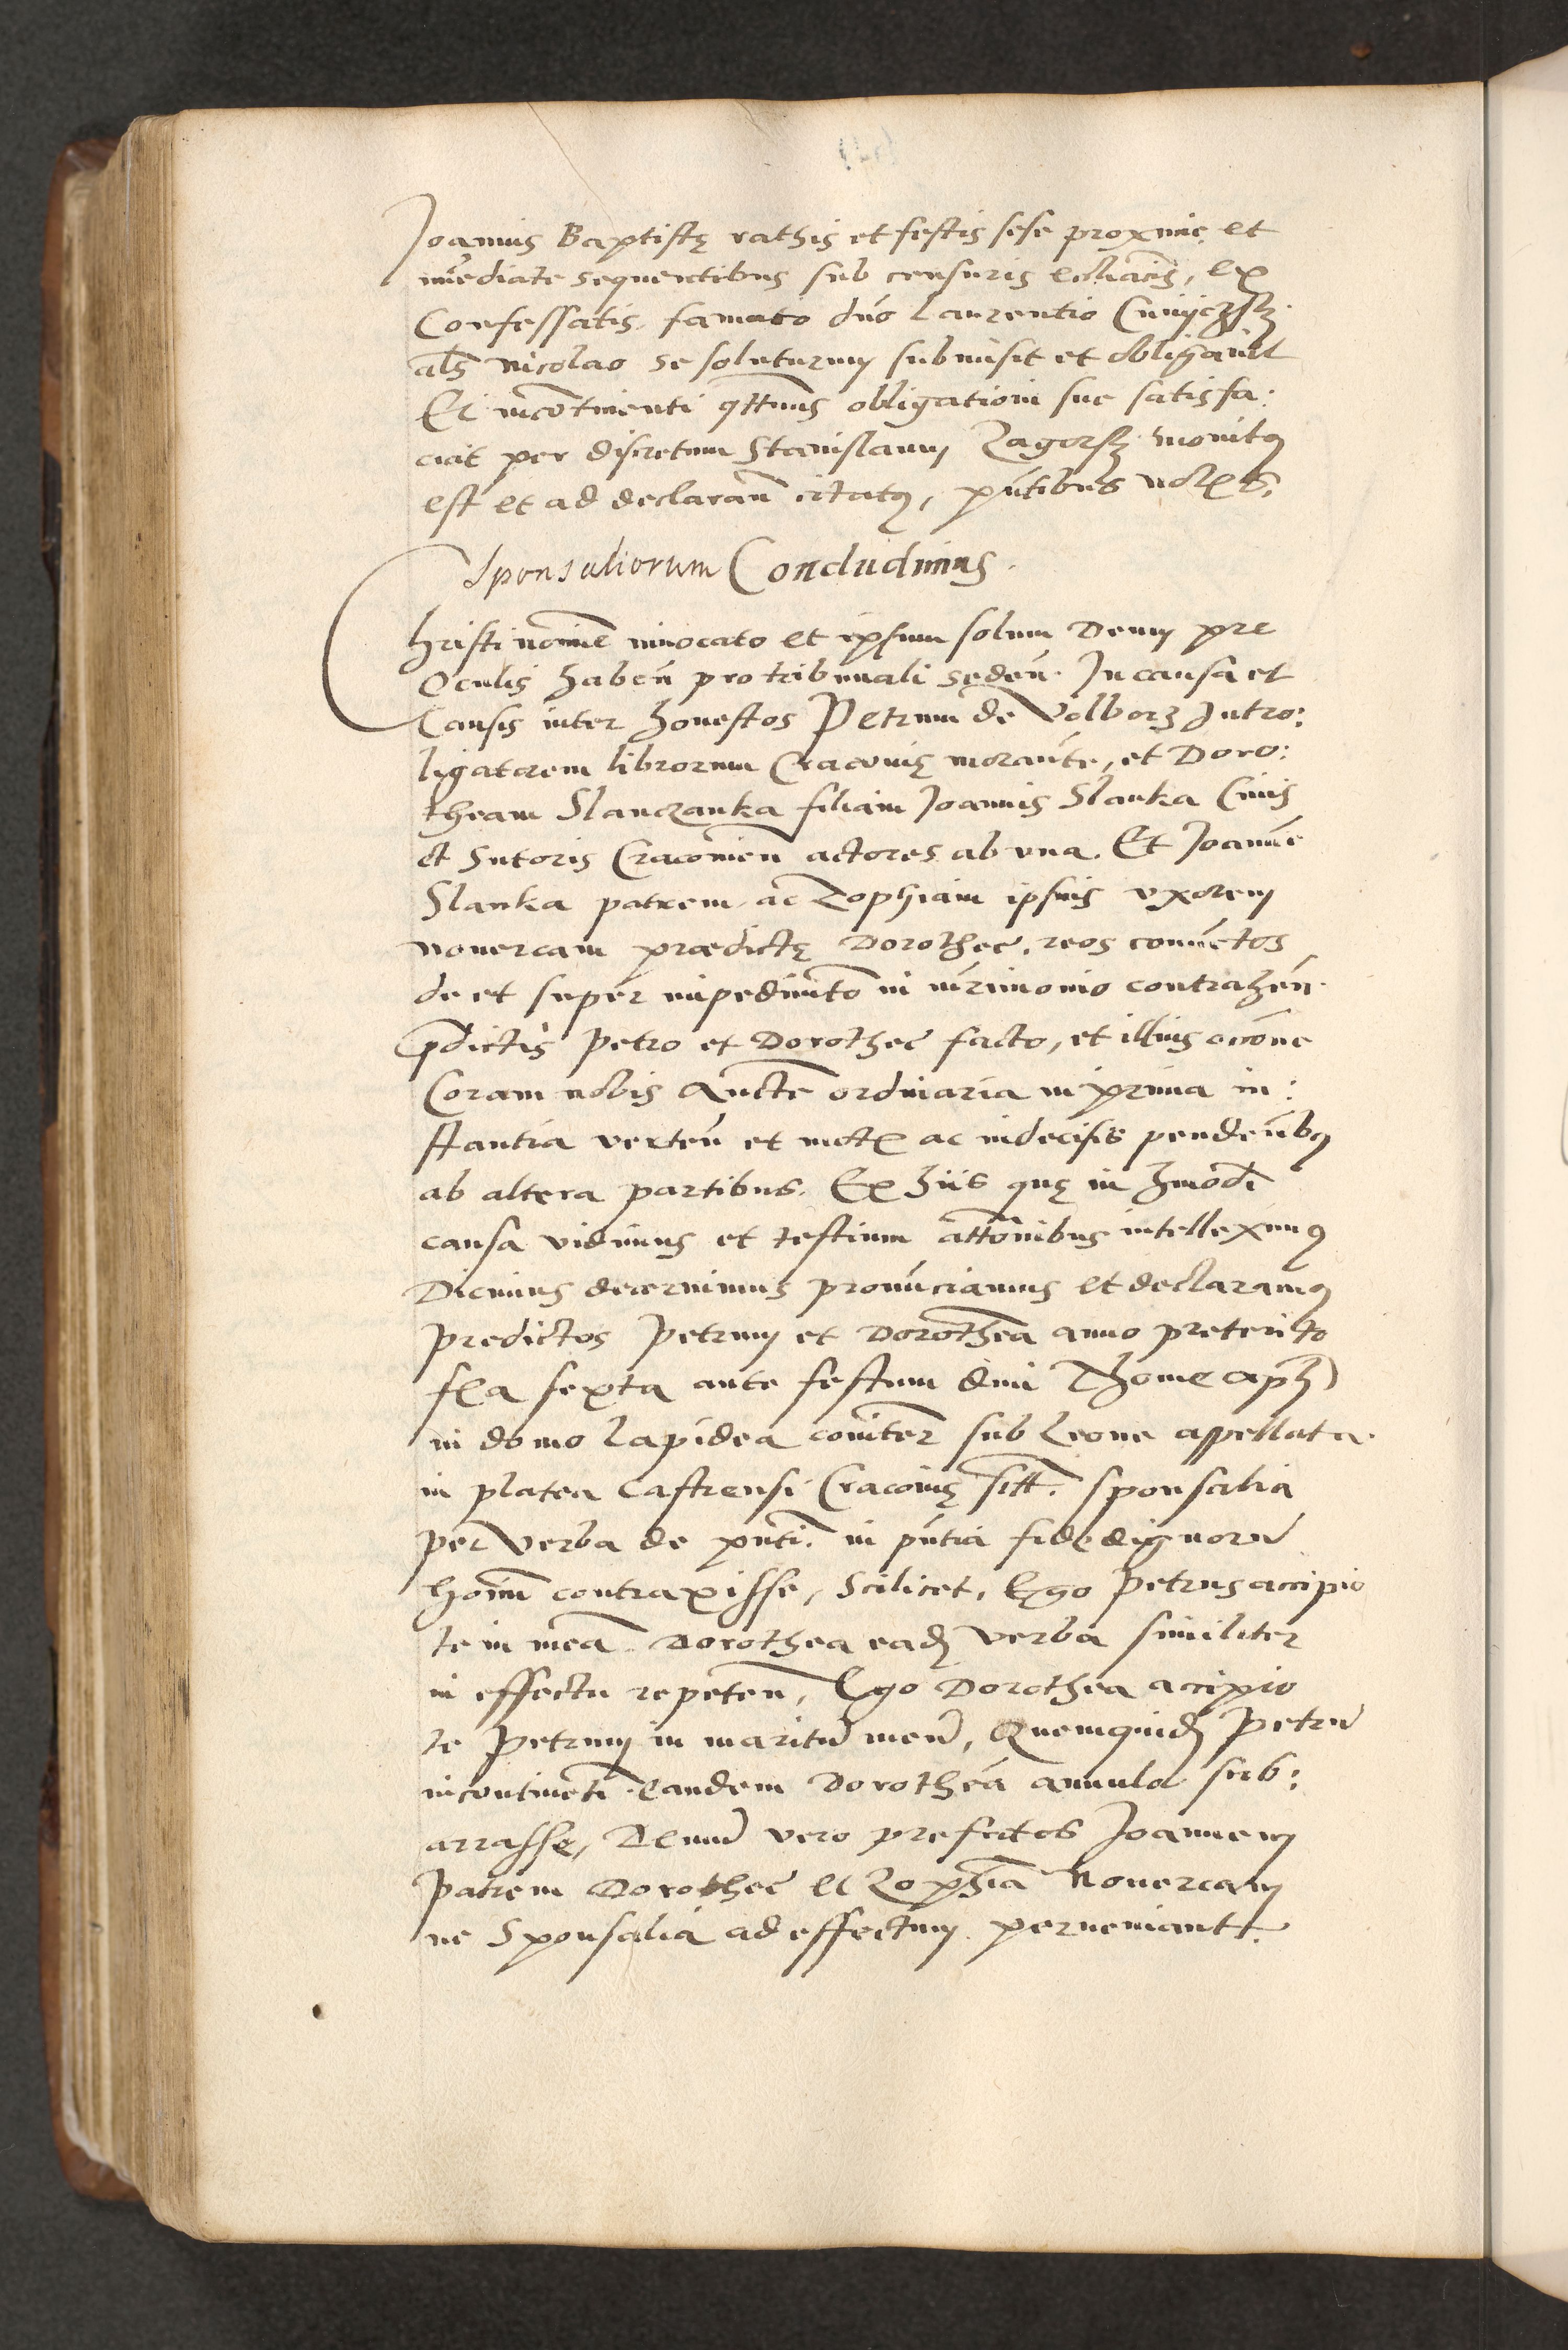 Joannis Baptistę rathis et festis sese proxime et
imediate sequentibus sub censuris ecclīacis, ex
Confessatis, famato dno Laurentio
als Nicolao se soluturum submisit et obligavit
Et incōtinenti qttnus obligationi sue satisfa:
ciat per discretum Stanislaum Zagorsky monitus
est et ad declarañ citatus, pntibus
Sponsaliorum Concludimus.
Christi nomīe invocato et ipsum solum Deum pre
Oculis habeñ pro tribunali sędeñ. In causa et
Causis inter honestos Petrum de Volborz Intro:
ligatorem librorum Cracovię morante, et Doro:
theam Slanczanka filiam Joannis Slanka Civis
et Sutoris Cracovieñ actores ab una. Et Joanne
Slanka patrem ac Zophiam ipsius uxorem
novercam prædictę Dorothee, reos conventos
de et super impedimto in mrimonio contraheñ.
pdictis Petro et Dorothee facto, et illius occōne
Coram nobis Aucte ordinaria in prima in:
stantia verteñ et motis ac indecisis pendeñbus
ab altera partibus. Ex hiis quę in hmōdi
causa vidimus et testium attōnibus intelleximus
Dicimus decernimus pronunciamus et declaramus
predictos Petrum et Dorotheā anno preterito
fla sexta ante festum divi Thome apli
in domo lapidea cōmiter sub Leone appellata
in platea Castrensi Cracovię sitt. sponsalia
per verba de pnti. in pntia fide dignorū
hoīum contraxisse, Scilicet, Ego Petrus accipio
te in meā. Dorothea eadem verba similiter
in effectu repeteñ, Ego Dorothea accipio
te Petrum in maritū meū, Quemquidem Petrū
incontinēti eandem Dorotheā annulo sub:
arrasse, Demū vero prefatos Joannem
Patrem Dorothee et Zophiā Novercam
ne Sponsalia ad effectum perveniant.